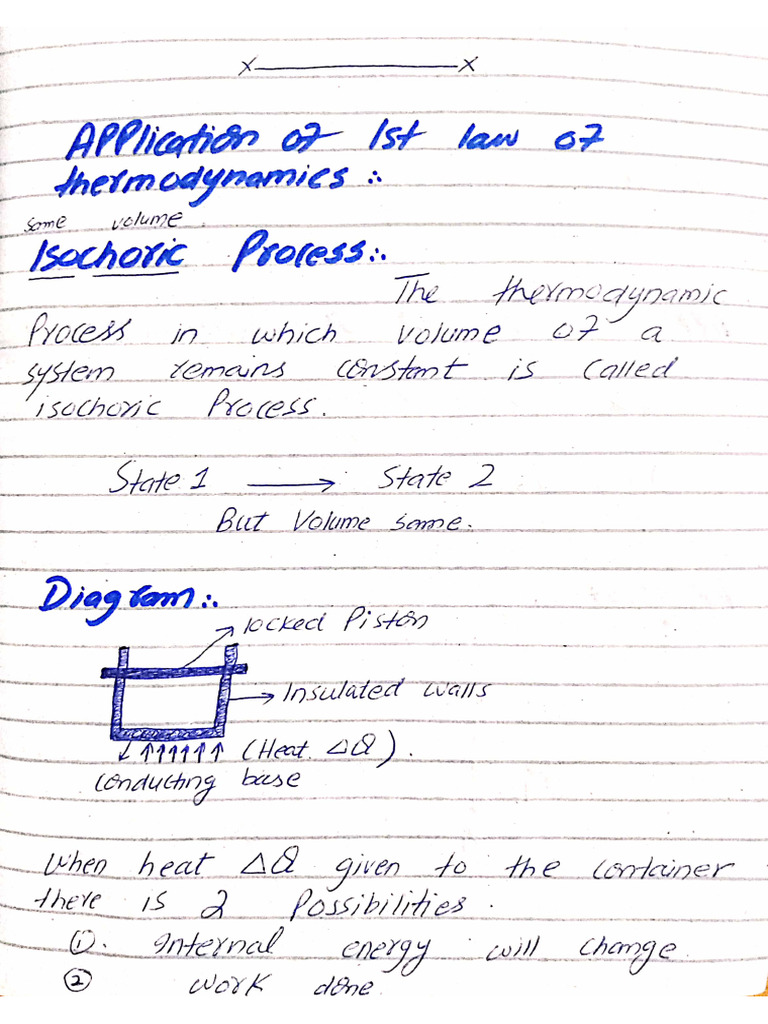 x————x
Application of 1st law of
thermodynamics :.
same volume
Isochoric Process:.
The thermodynamic
Process in which volume of a
system remains constant is called
isochoric Process.
State 1 → State 2
But Volume same.
Diagram:.
locked Piston
Insulated walls
(Heat ΔQ).
conducting base
When heat ΔQ given to the container
there is 2 Possibilities.
①. Internal energy will change.
② work done.